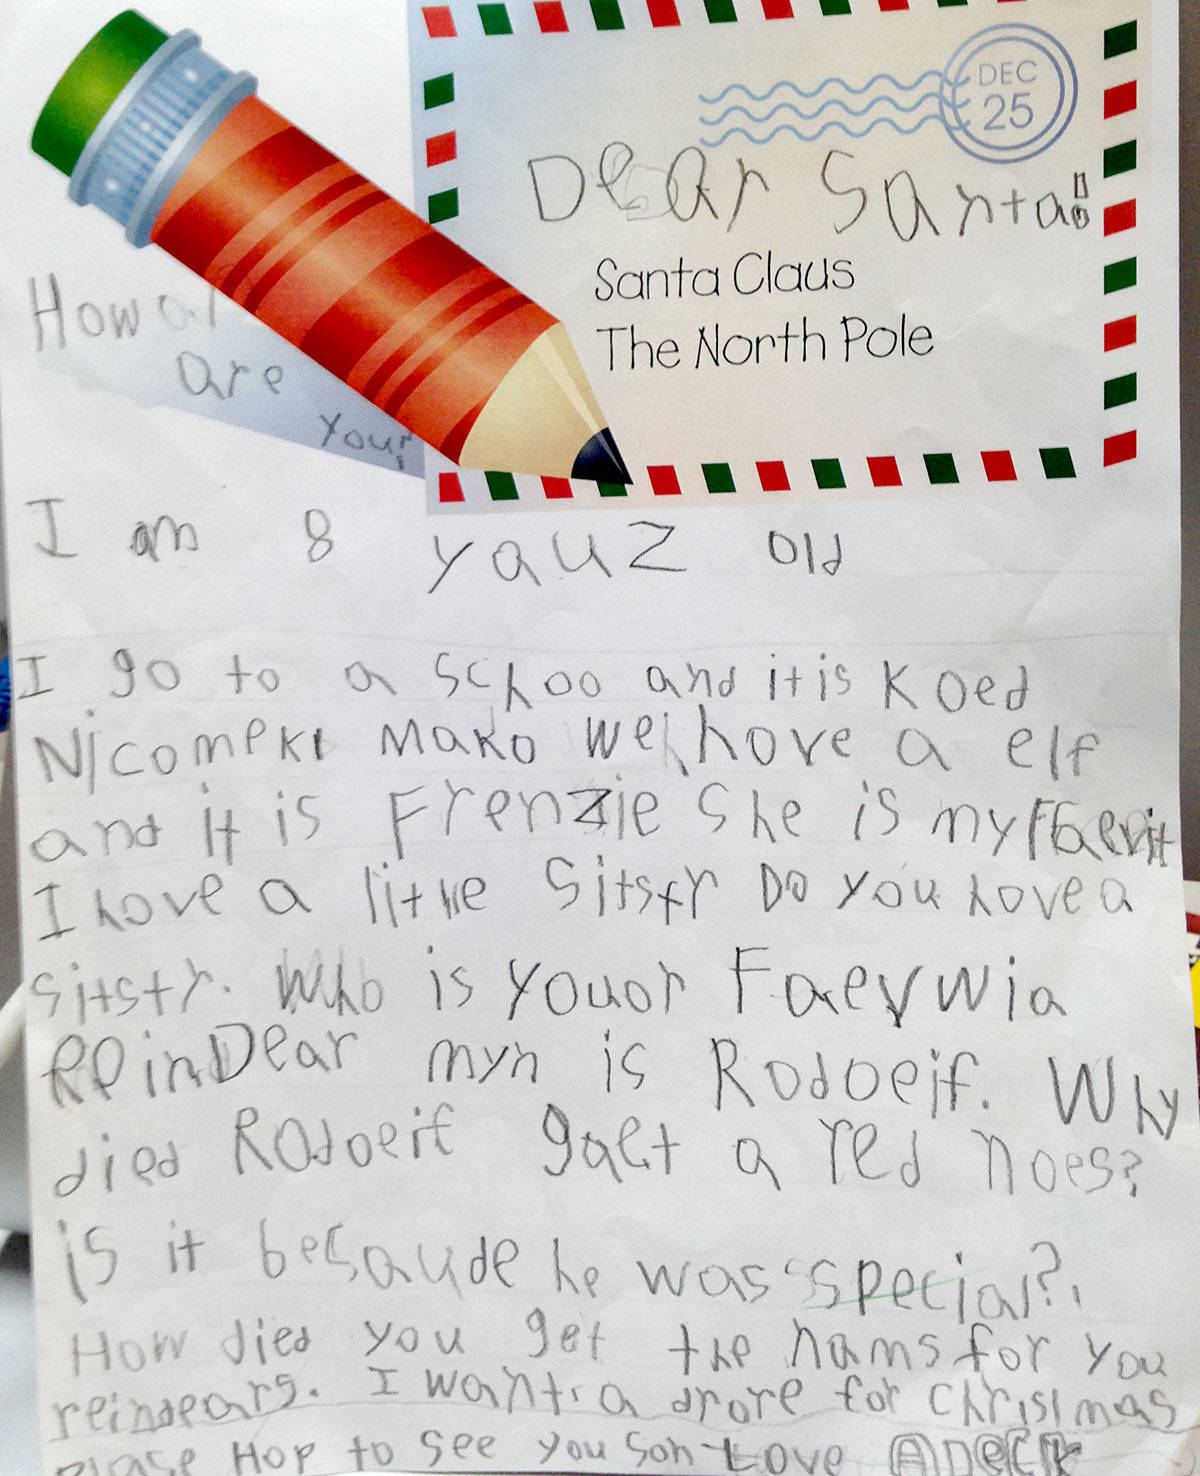 DEC
25
Dear Santa!
Santa Claus
The North Pole
How
are
you?
I am 8 yauz old
I go to a schoo and it is Koed
Nicomeki Mako We hove a elf
and it is Frenzie She is my Faerit
I hove a litke Sitstr Do you hove a
sitstr. Who is youor Faerwia
ReinDear myn is Rodoeif. Why
died Rodoeif gaet a red noes?
is it besaude he was special?
How died you get the nams for you
reindears. I want a drore for Christmas
Please Hop to see you son Love